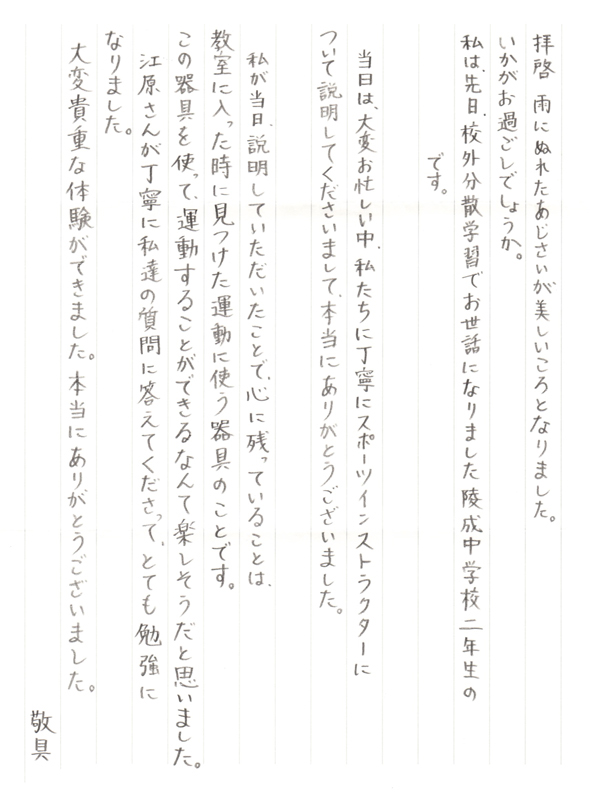 拝啓　雨にぬれたあじさいが美しいころとなりました。
いかがお過ごしでしょうか。
私は、先日、校外分散学習でお世話になりました陵成中学校二年生の
です。
当日は、大変お忙しい中、私たちに丁寧にスポーツインストラクターに
ついて説明してくださいまして、本当にありがとうございました。
私が当日、説明していただいたことで、心に残っていることは、
教室に入った時に見つけた運動に使う器具のことです。
この器具を使って、運動することができるなんて楽しそうだと思いました。
江原さんが丁寧に私達の質問に答えてくださって、とても勉強に
なりました。
大変貴重な体験ができました。本当にありがとうございました。
敬具